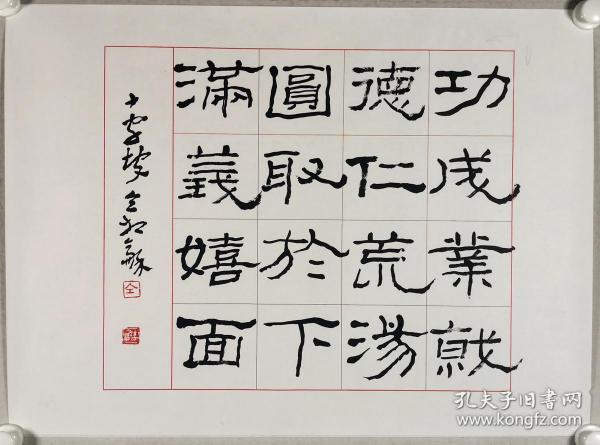 功成業就
德仁荒湯
圓取於下
滿義嬉面
全
孔夫子旧书网
www.kongfz.com